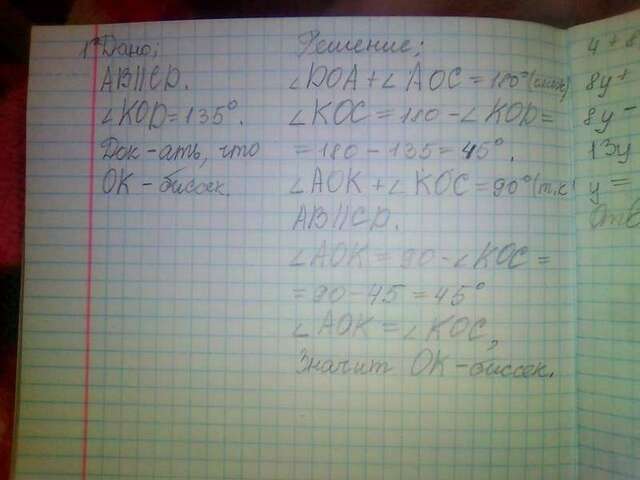 1° Дано:
АВ||СD.
∠KOD=135°.
Док-ать, что
ОК-биссек.
Решение:
∠DOA+∠AOC=180°
∠KOC=180-∠KOD=
=180-135=45°.
∠AOK+∠KOC=90°(т.к
АВ||СD.
∠AOK=90-∠KOC=
=90-45=45°
∠AOK=∠KOC,
Значит ОК-биссек.
4+8
8y+
8y-
13y
y=
Отв